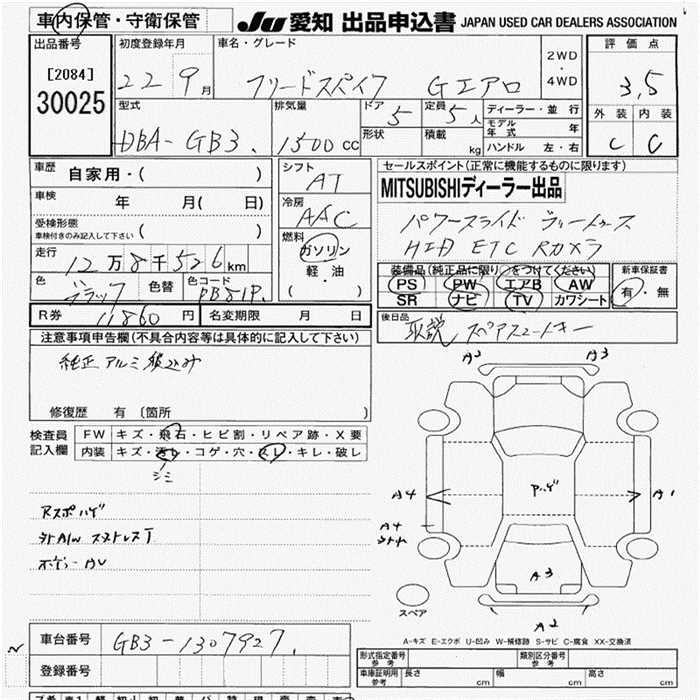 車内保管・守衛保管 JU 愛知 出品申込書 JAPAN USED CAR DEALERS ASSOCIATION
出品番号 初度登録年月 車名・グレード 2WD・4WD 評価点
[2084] 22 9月 フリードスパイク Gエアロ 3.5
30025
型式 排気量 ドア 定員 ディーラー・並行 外装 内装
DBA-GB3. 1500cc 5 5人 モデル年式 年
形状 積載 kg ハンドル 左・右 C C
車歴 自家用・( ) シフト AT セールスポイント(正常に機能するものに限ります)
車検 年 月( 日) 冷房 AAC MITSUBISHIディーラー出品
受検形態 車検付きのみ記入して下さい ( ) 燃料 パワースライド
走行 12万8千526km ガソリン HID ETC Rカメラ
軽・油
・( )
色 ブラック 色替 色コード 装備品(純正品に限り○をつけてください) 新車保証書
PS PW エアB AW 有・無
SR ナビ TV カワシート
R券 11860円 名変期限 月 日 後日品
取説 スペアスマートキー
注意事項申告欄(不具合内容等は具体的に記入して下さい)
純正アルミ積込み
修復歴 有 〔箇所 〕
検査員記入欄 FW キズ・飛石・ヒビ割・リペア跡・X要
内装 キズ・汚レ・コゲ・穴・スレ・キレ・破レ
シミ
Rスポハゲ
外AW スタットレスT
A2 A3
Pハゲ
A4 A1
A4
A3
スペア A2
A-キズ E-エクボ U-凹み W-補修跡 S-サビ C-腐食 XX-交換済
車台番号 GB3-1307927.
登録番号
形式指定番号 参考 類別区分番号 参考
車庫証明用 参考 長さ cm 幅 cm 高さ cm